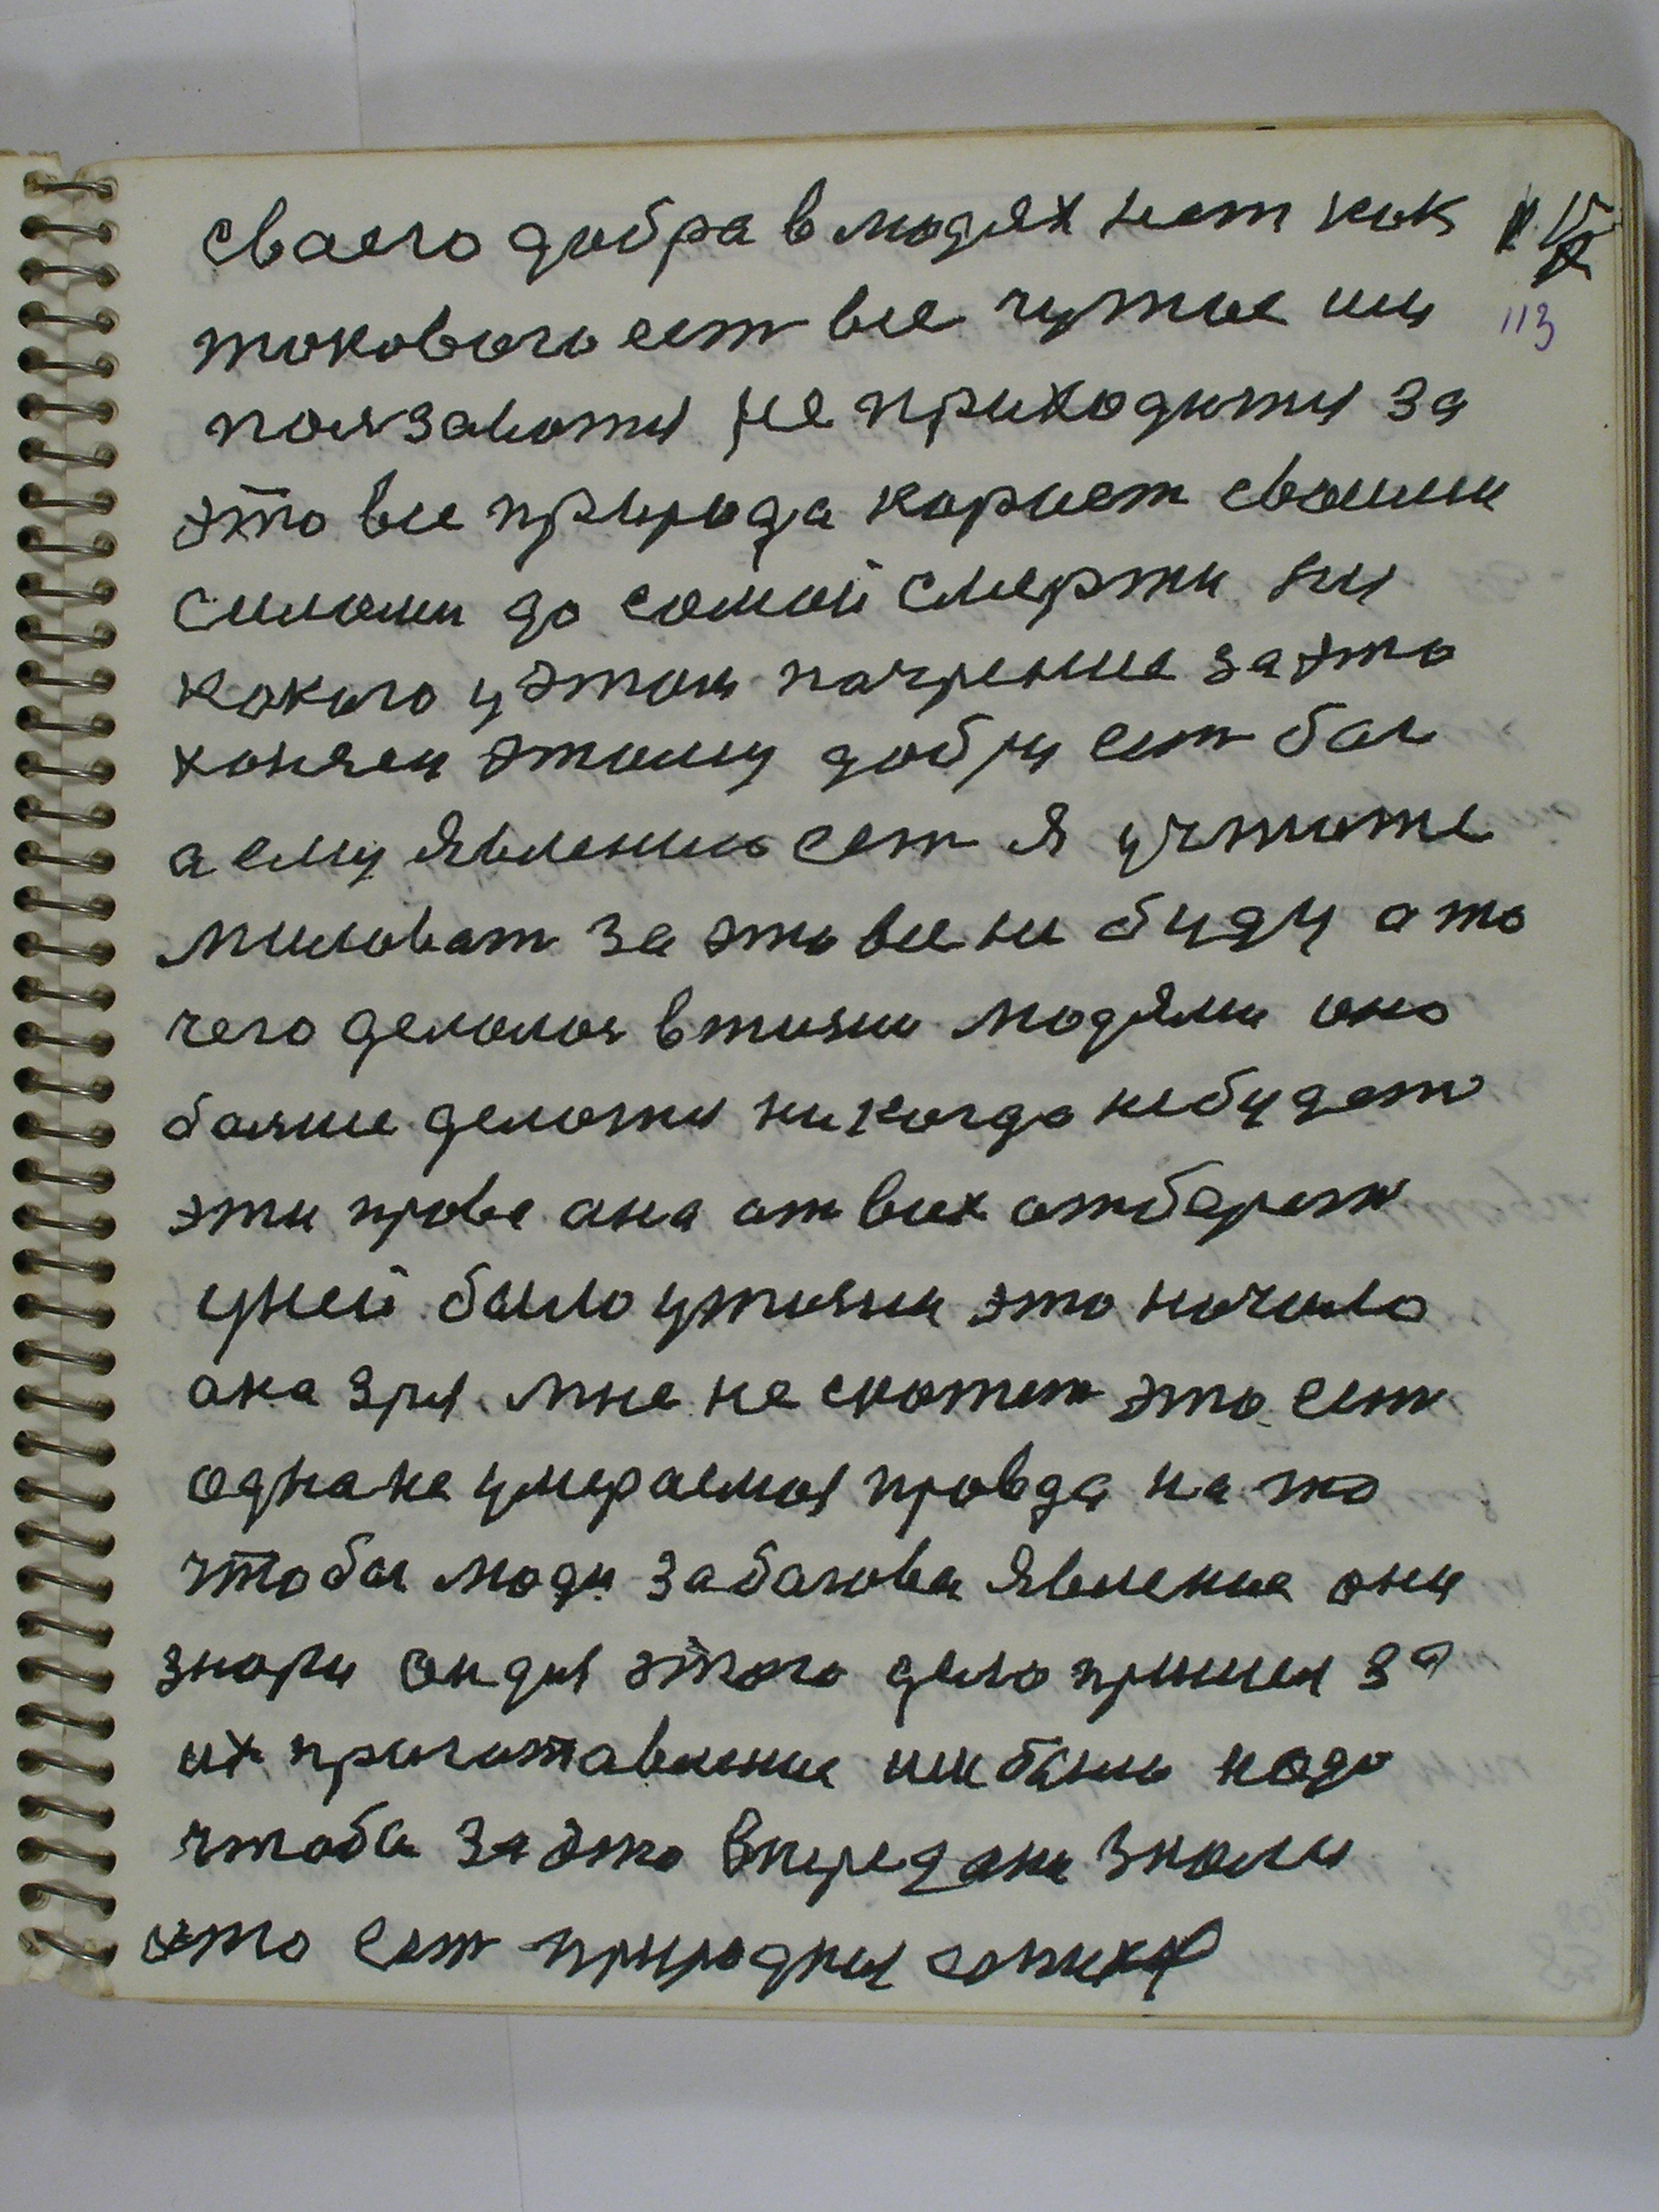 сваего добра в людях нет как 
113
таковога ест все чужое им
ползавотся не приходится за
это все прырода карает своими
силоми до самой смерти ни
какого у этом
хозяен этому добру ест бог
а ему явлению ест я
миловат за это все ни буду а то
чего делолос в жизни людями оно
болше делотся никогда не будет
эти права она от всих отбереж
у ней было у жизни это начало
она зря мне не скажет это ест
одна не умераемоя правда на то
чтобы люди забалова явление они
знали он для этого дела пришел за
их приготавление им было надо
чтобы за это вперед они знали
это ест природныя